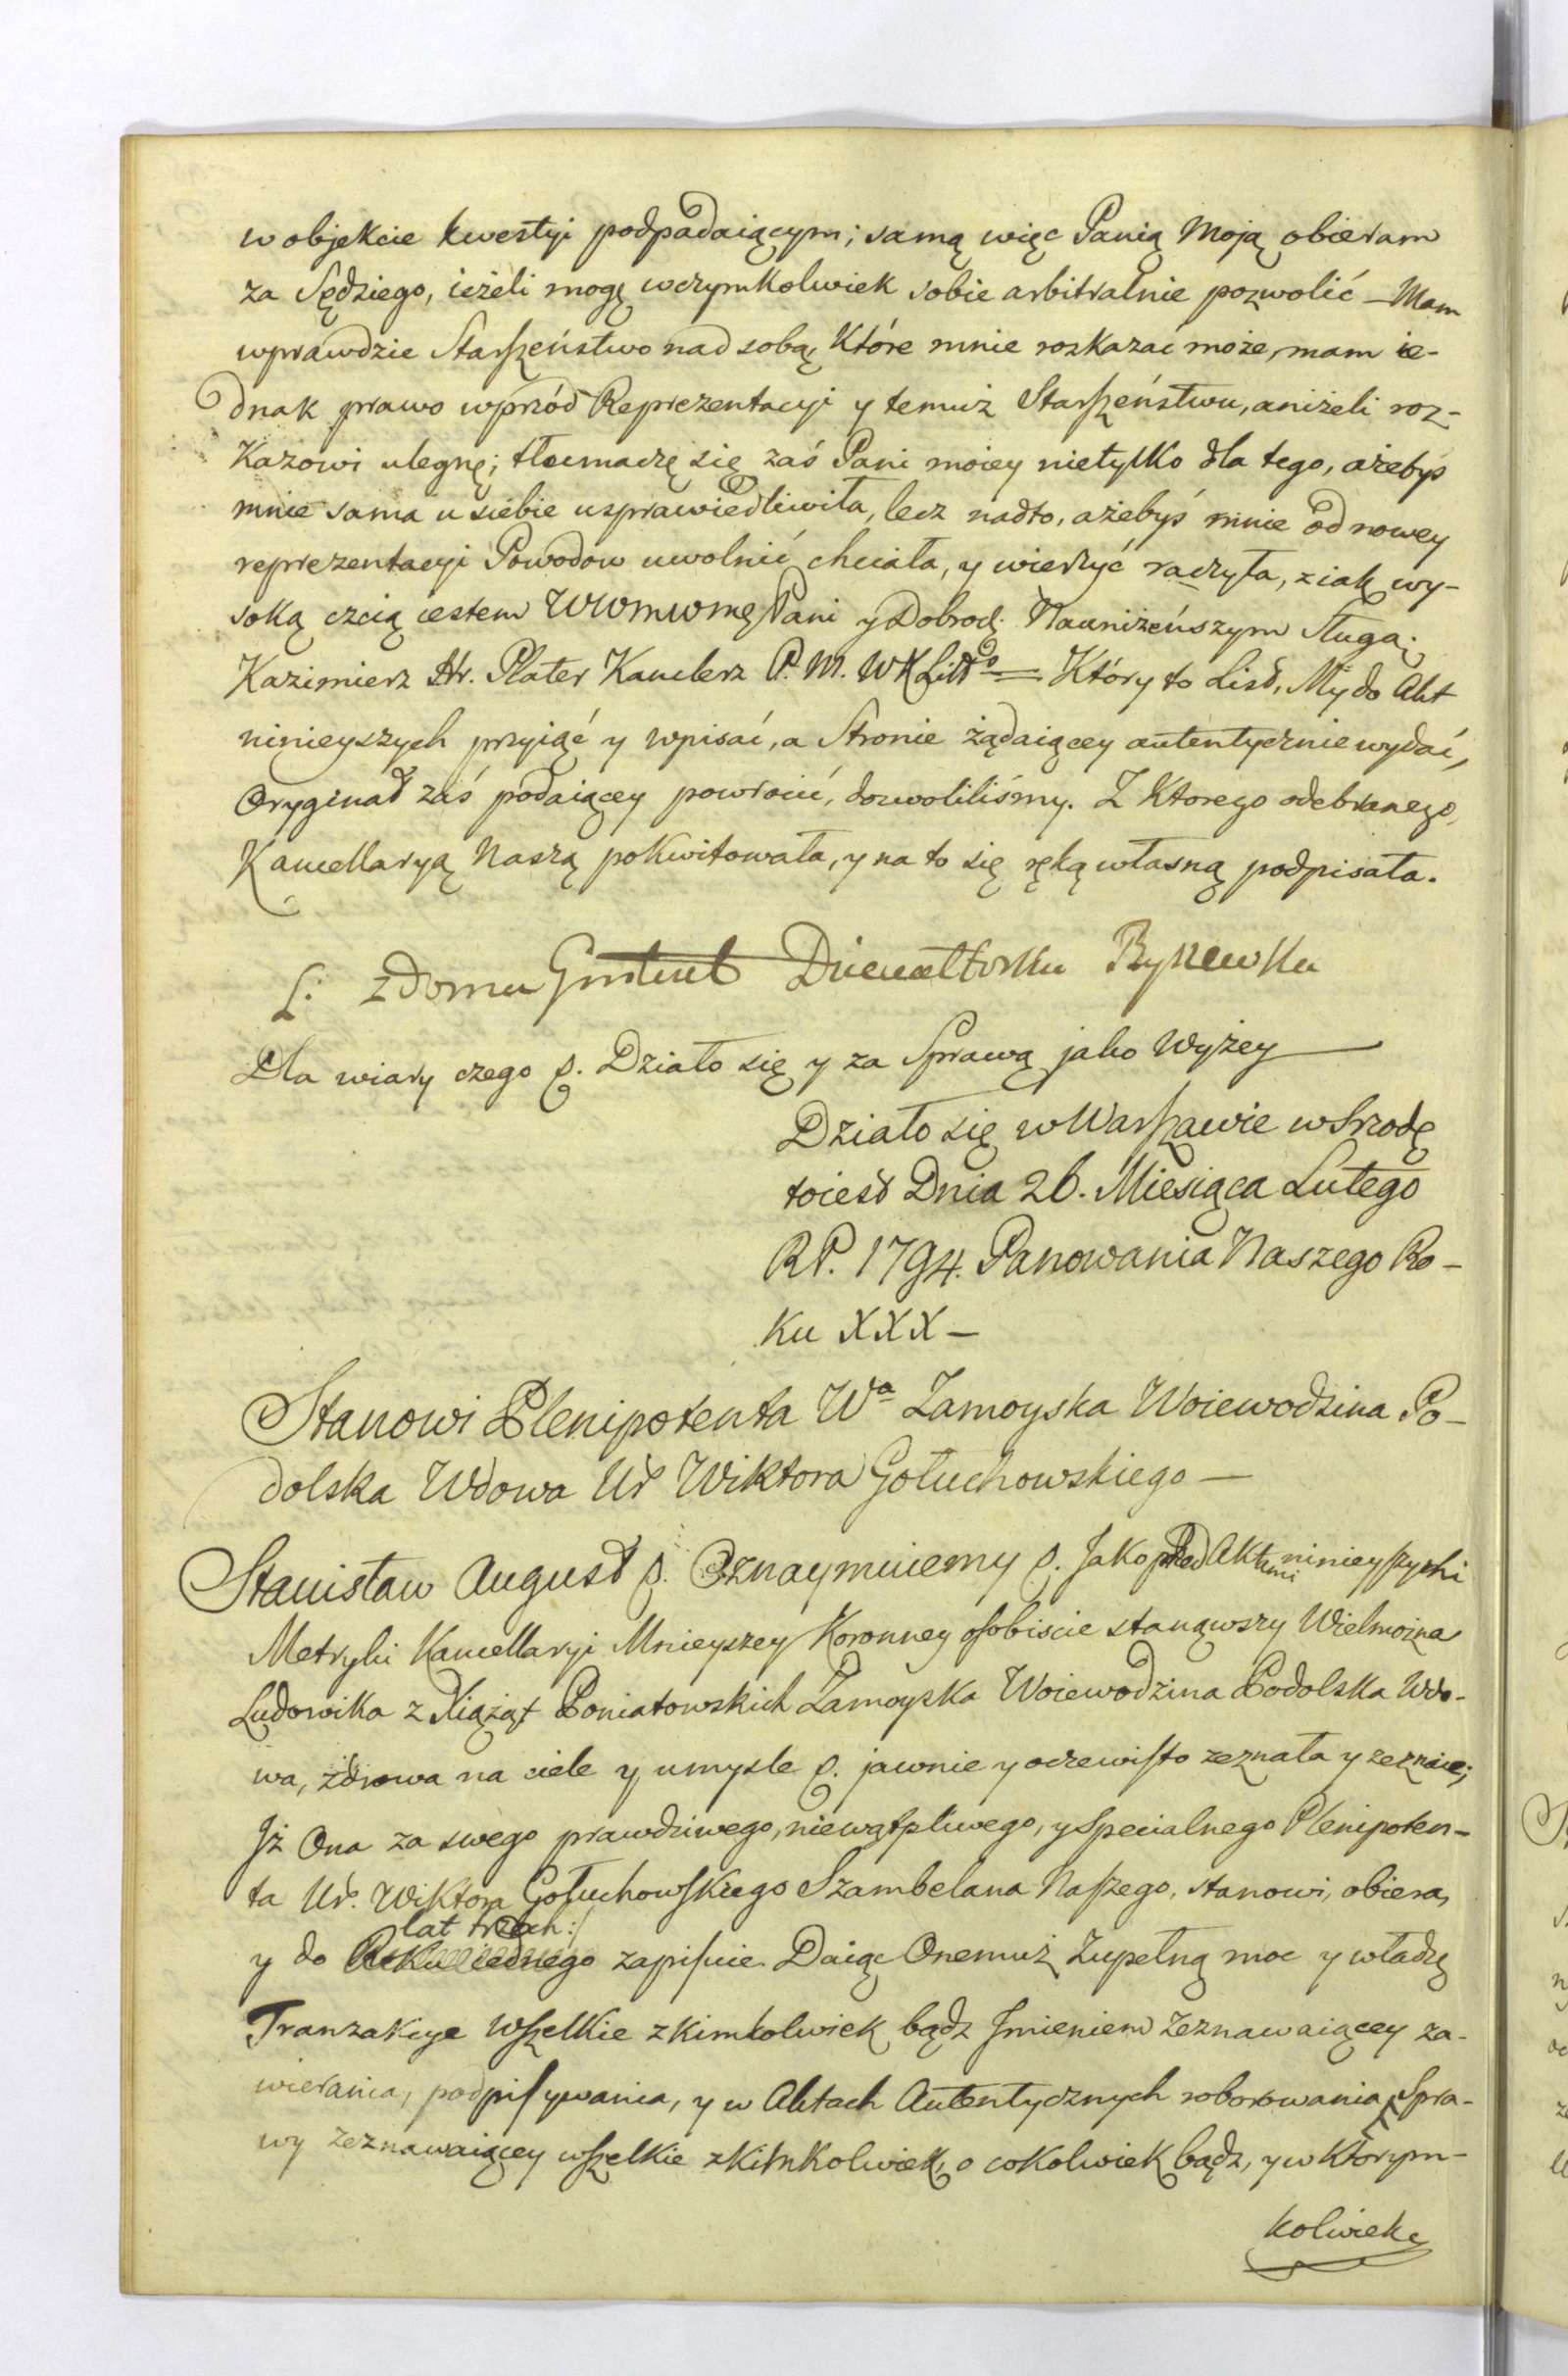 w objekcie kwestyi podpadaiącym; samą więc Panią Moją obieram
za Sędziego, ieżeli mogę wczymkolwiek sobie arbitralnie pozwolić – Mam
wprawdzie Starszeństwo nad sobą, Które mnie rozkazać może, mam ie-
dnak prawo wprzód Reprezentacyi y temuż Starszeństwu, aniżeli roz-
Kazowi ulegnę; tłomaczę się zaś Pani moiey nietylko dla tego, ażebyś
mnie sama u siebie usprawiedliwiła, lecz nadto, ażebyś mnie od nowey
reprezentacyi Powodow uwolnić chciała, y wierzyć raczyła, z iak wy-
soką czcią iestem WWMWMę Pani y Dobrod. Nauniżeńszym Sługą.
Kazimierz Hr. Plater Kanclerz P. M. WXLitt° = Który to List, My do Akt
ninieyszych przyiąć y wpisać, a Stronie żądaiącey autentycznie wydać,
Oryginał zaś podaiącey powrócić, dozwoliliśmy. Z Ktorego odebranego,
Kancellaryą Naszą pokwitowała, y na to się ręką własną podpisała.
L: z domu
Dla wiary czego p. Działo się y za Sprawą jako Wyżey
Działo się w Warszawie w Srzodę
toiest Dnia 26. Miesiąca Lutego
RP. 1794. Panowania Naszego Ro-
ku XXX –
Stanowi Plenipotenta Wa Zamoyska Woiewodzina Po-
dolska Wdowa Ur Wiktora Gołuchowskiego –
Stanisław August p. Oznaymuiemy p. Jako przed Aktami ninieyszychi
Metryki Kancellaryi Mnieyszey Koronney osobiscie stanąwszy Wielmożna
Ludowika z Xiążąt Poniatowskich Zamoyska Woiewodzina Podolska Wdo-
wa, zdrowa na ciele y umysle p. jawnie y oczewisto zeznała y zeznaie;
Jż Ona za swego prawdziwego, niewątpliwego, y Specialnego Plenipoten-
ta Ur. Wiktora Gołuchowskiego Szambelana Naszego, stanowi, obiera,
lat trzech:/
y do Roku iednego zapisuie. Daiąc Onemuż Zupełną moc y władzę
Tranzakcye wszelkie z kimkolwiek bądz Jmieniem Zeznawaiącey za-
wierania, podpisywania, y w Aktach Autentycznych roborowania, Spra-
wy Zeznawaiącey wszelkie z kimkolwiek, o cokolwiek bądz, y w Ktorym-
kolwiek